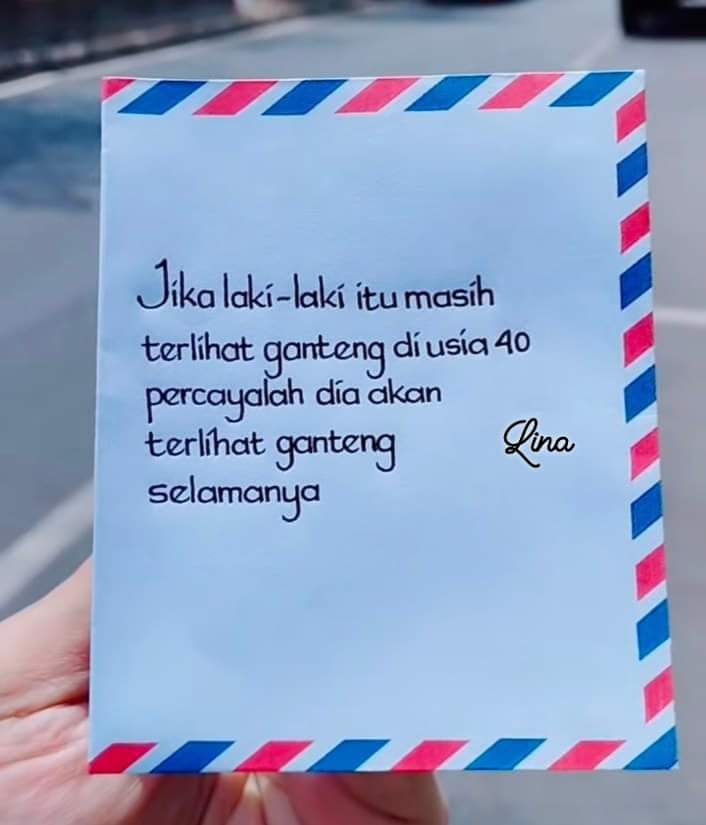 Jika laki-laki itu masih
terlihat ganteng di usia 40
percayalah dia akan
terlihat ganteng
selamanya
Lina